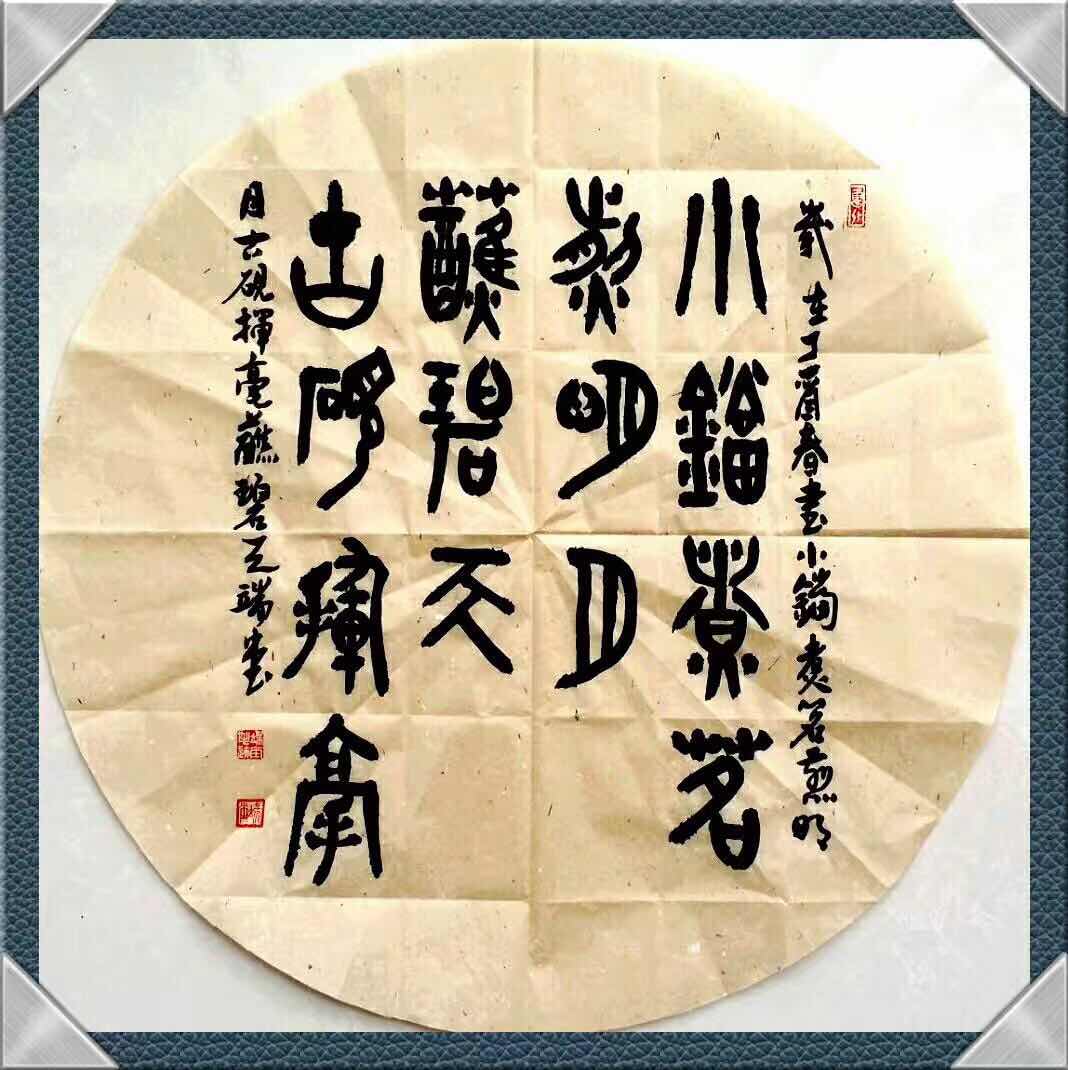 歲在丁酉春書小鐺煮茗煎明
小鐺煮茗
煎明月
蘸碧天
古硯揮毫
月古硯揮毫蘸碧天端書